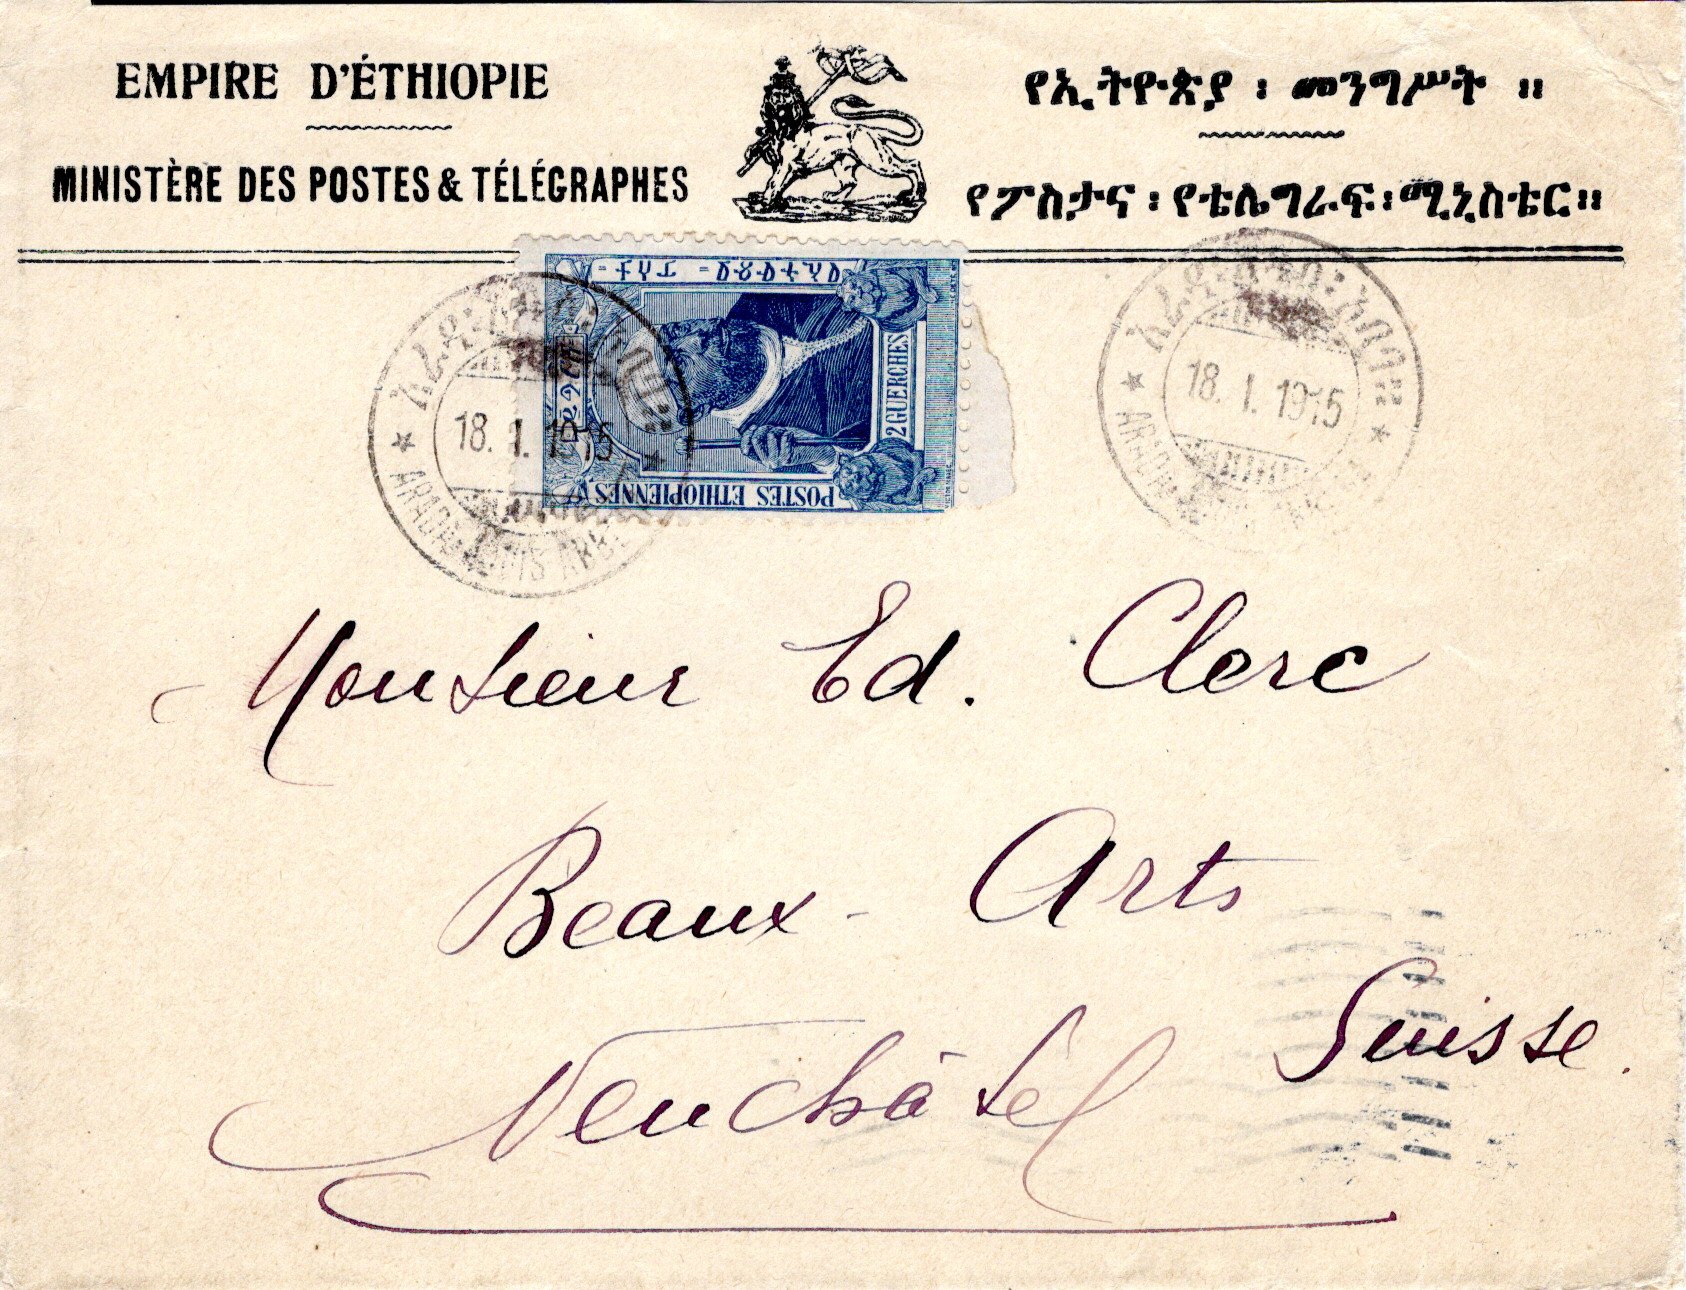 EMPIRE D'ÉTHIOPIE
MINISTÈRE DES POSTES & TÉLÉGRAPHES
የኢትዮጵያ ፡ መንግሥት ።
የፖስታና ፡ የቴሌግራፍ ፡ ሚኒስቴር ።
2 GUERCHES
POSTES ETHIOPIENNES
18. 1. 1915
18. 1. 1915
Monsieur Ed. Clerc
Beaux-Arts
Neuchâtel
Suisse.